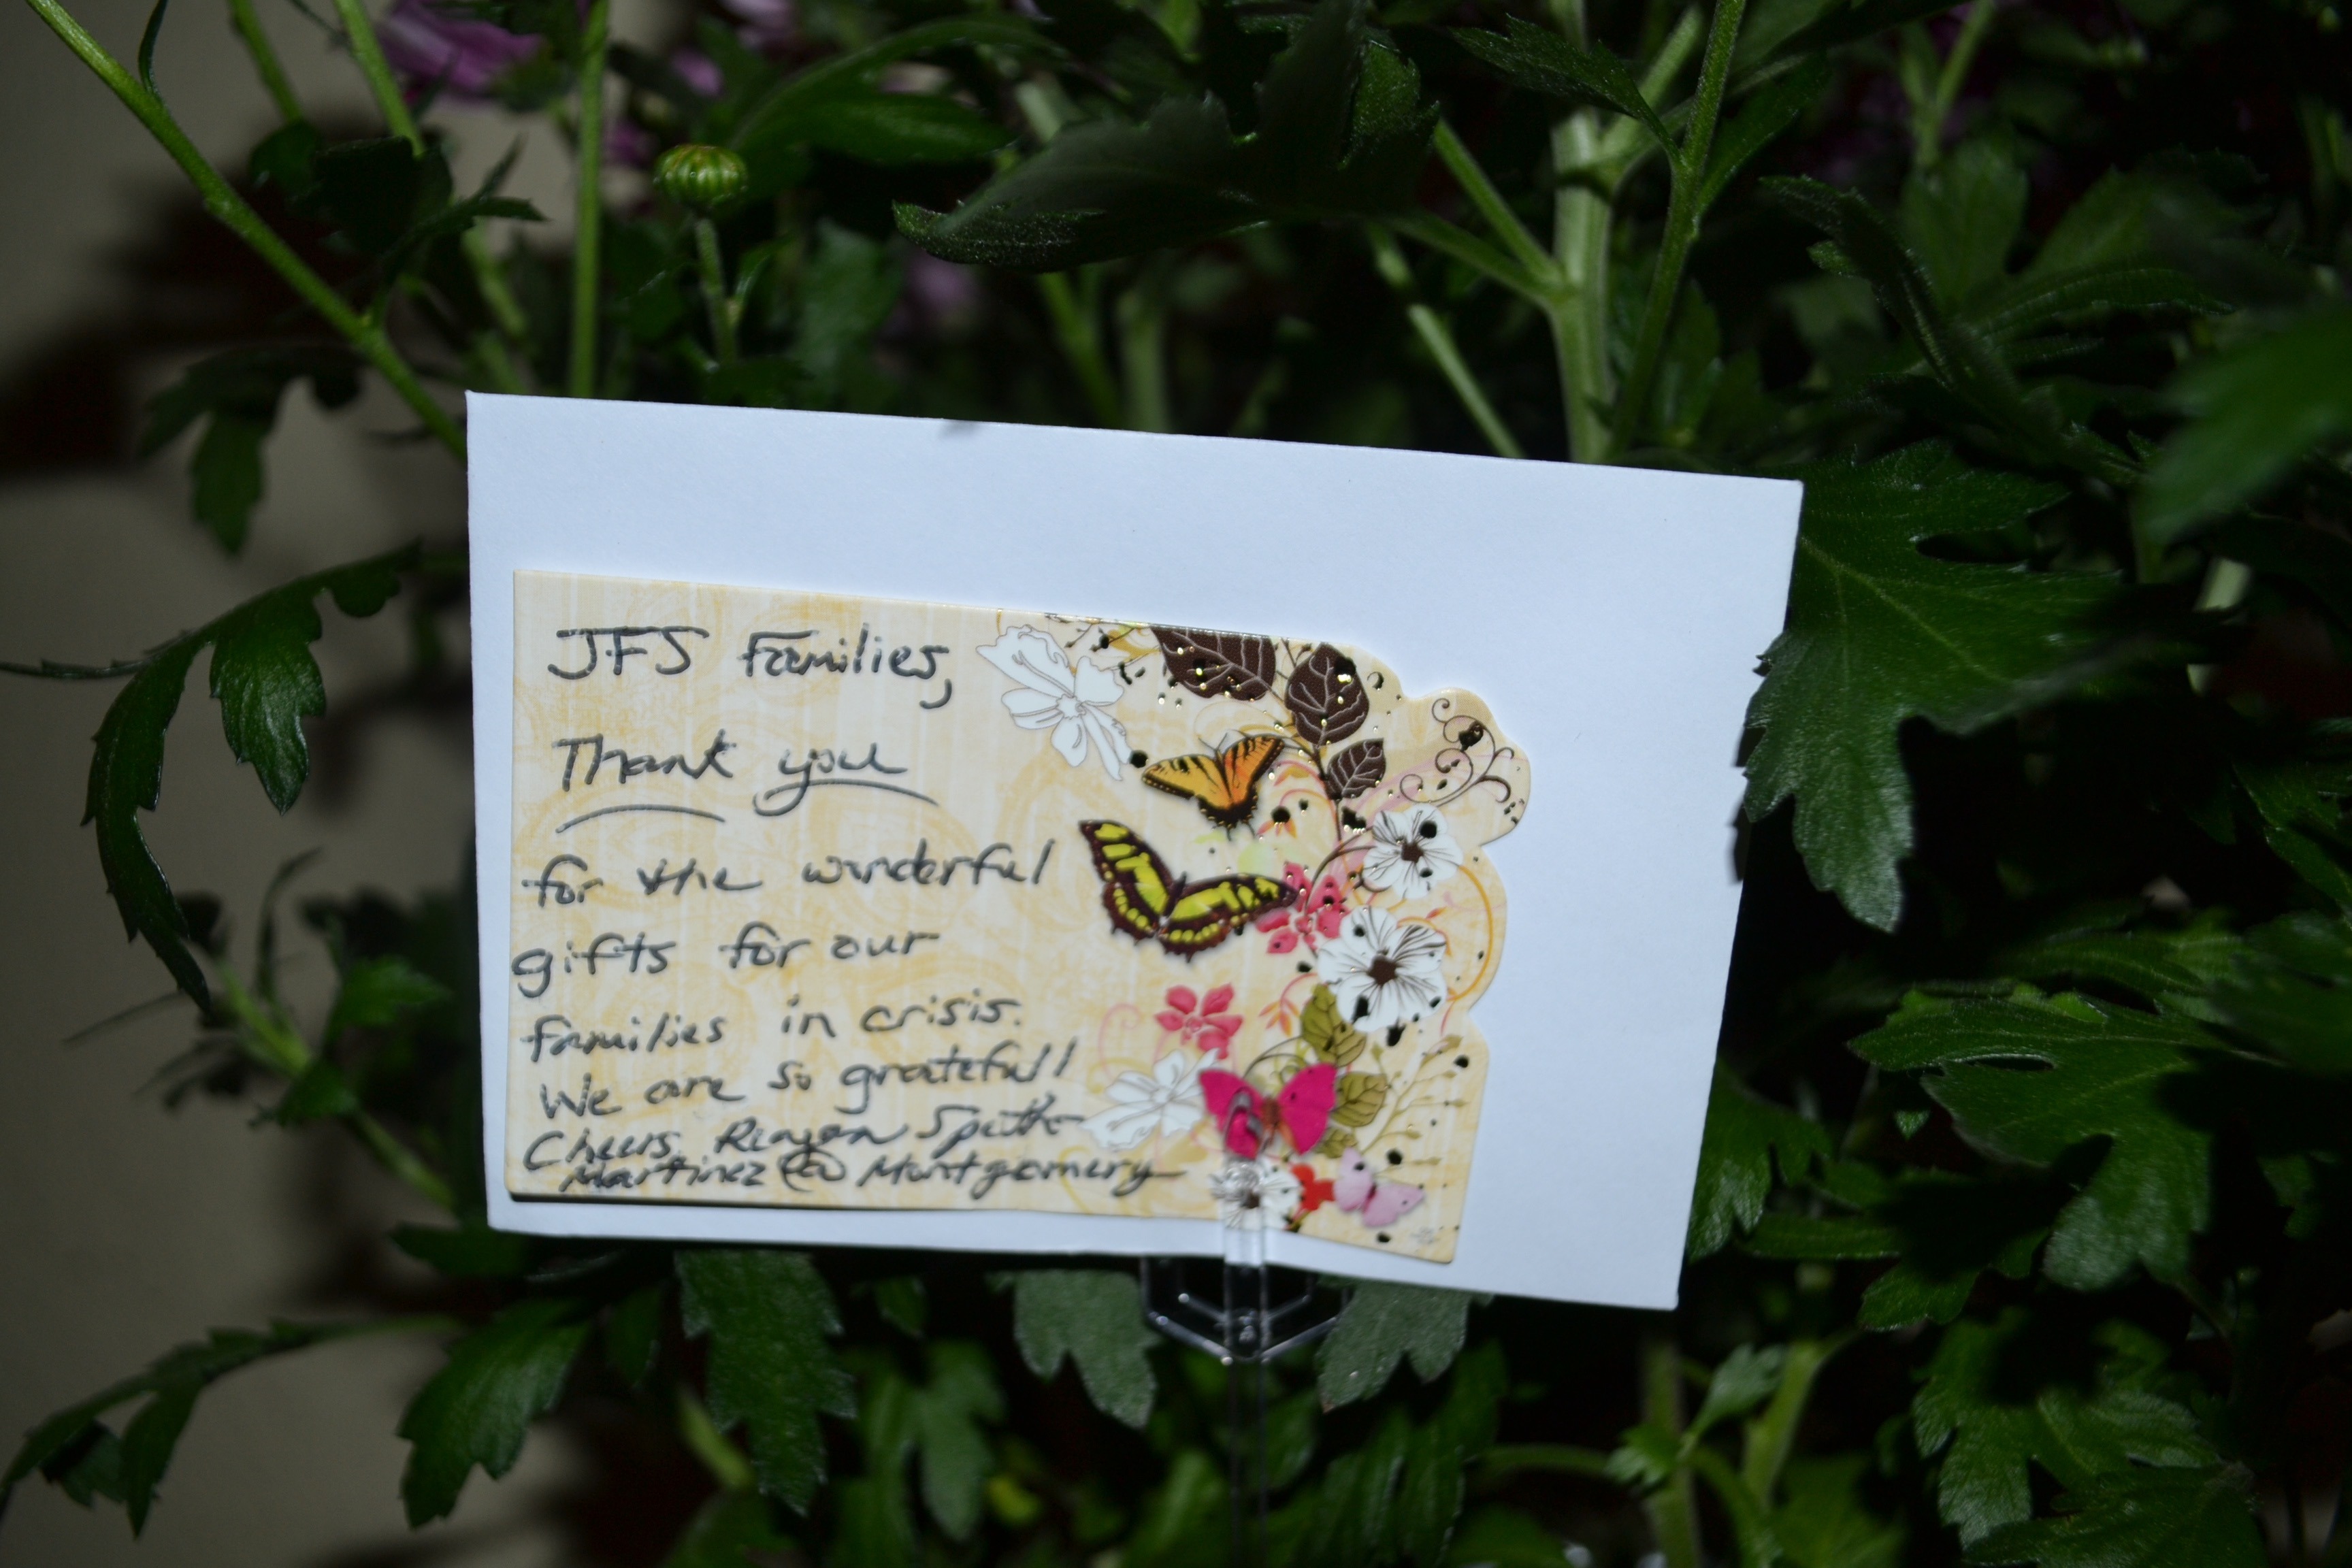 JFS Families,
Thank you
for the wonderful
gifts for our
families in crisis.
We are so grateful!
Cheers, Spath
Martinez @ Montgomery